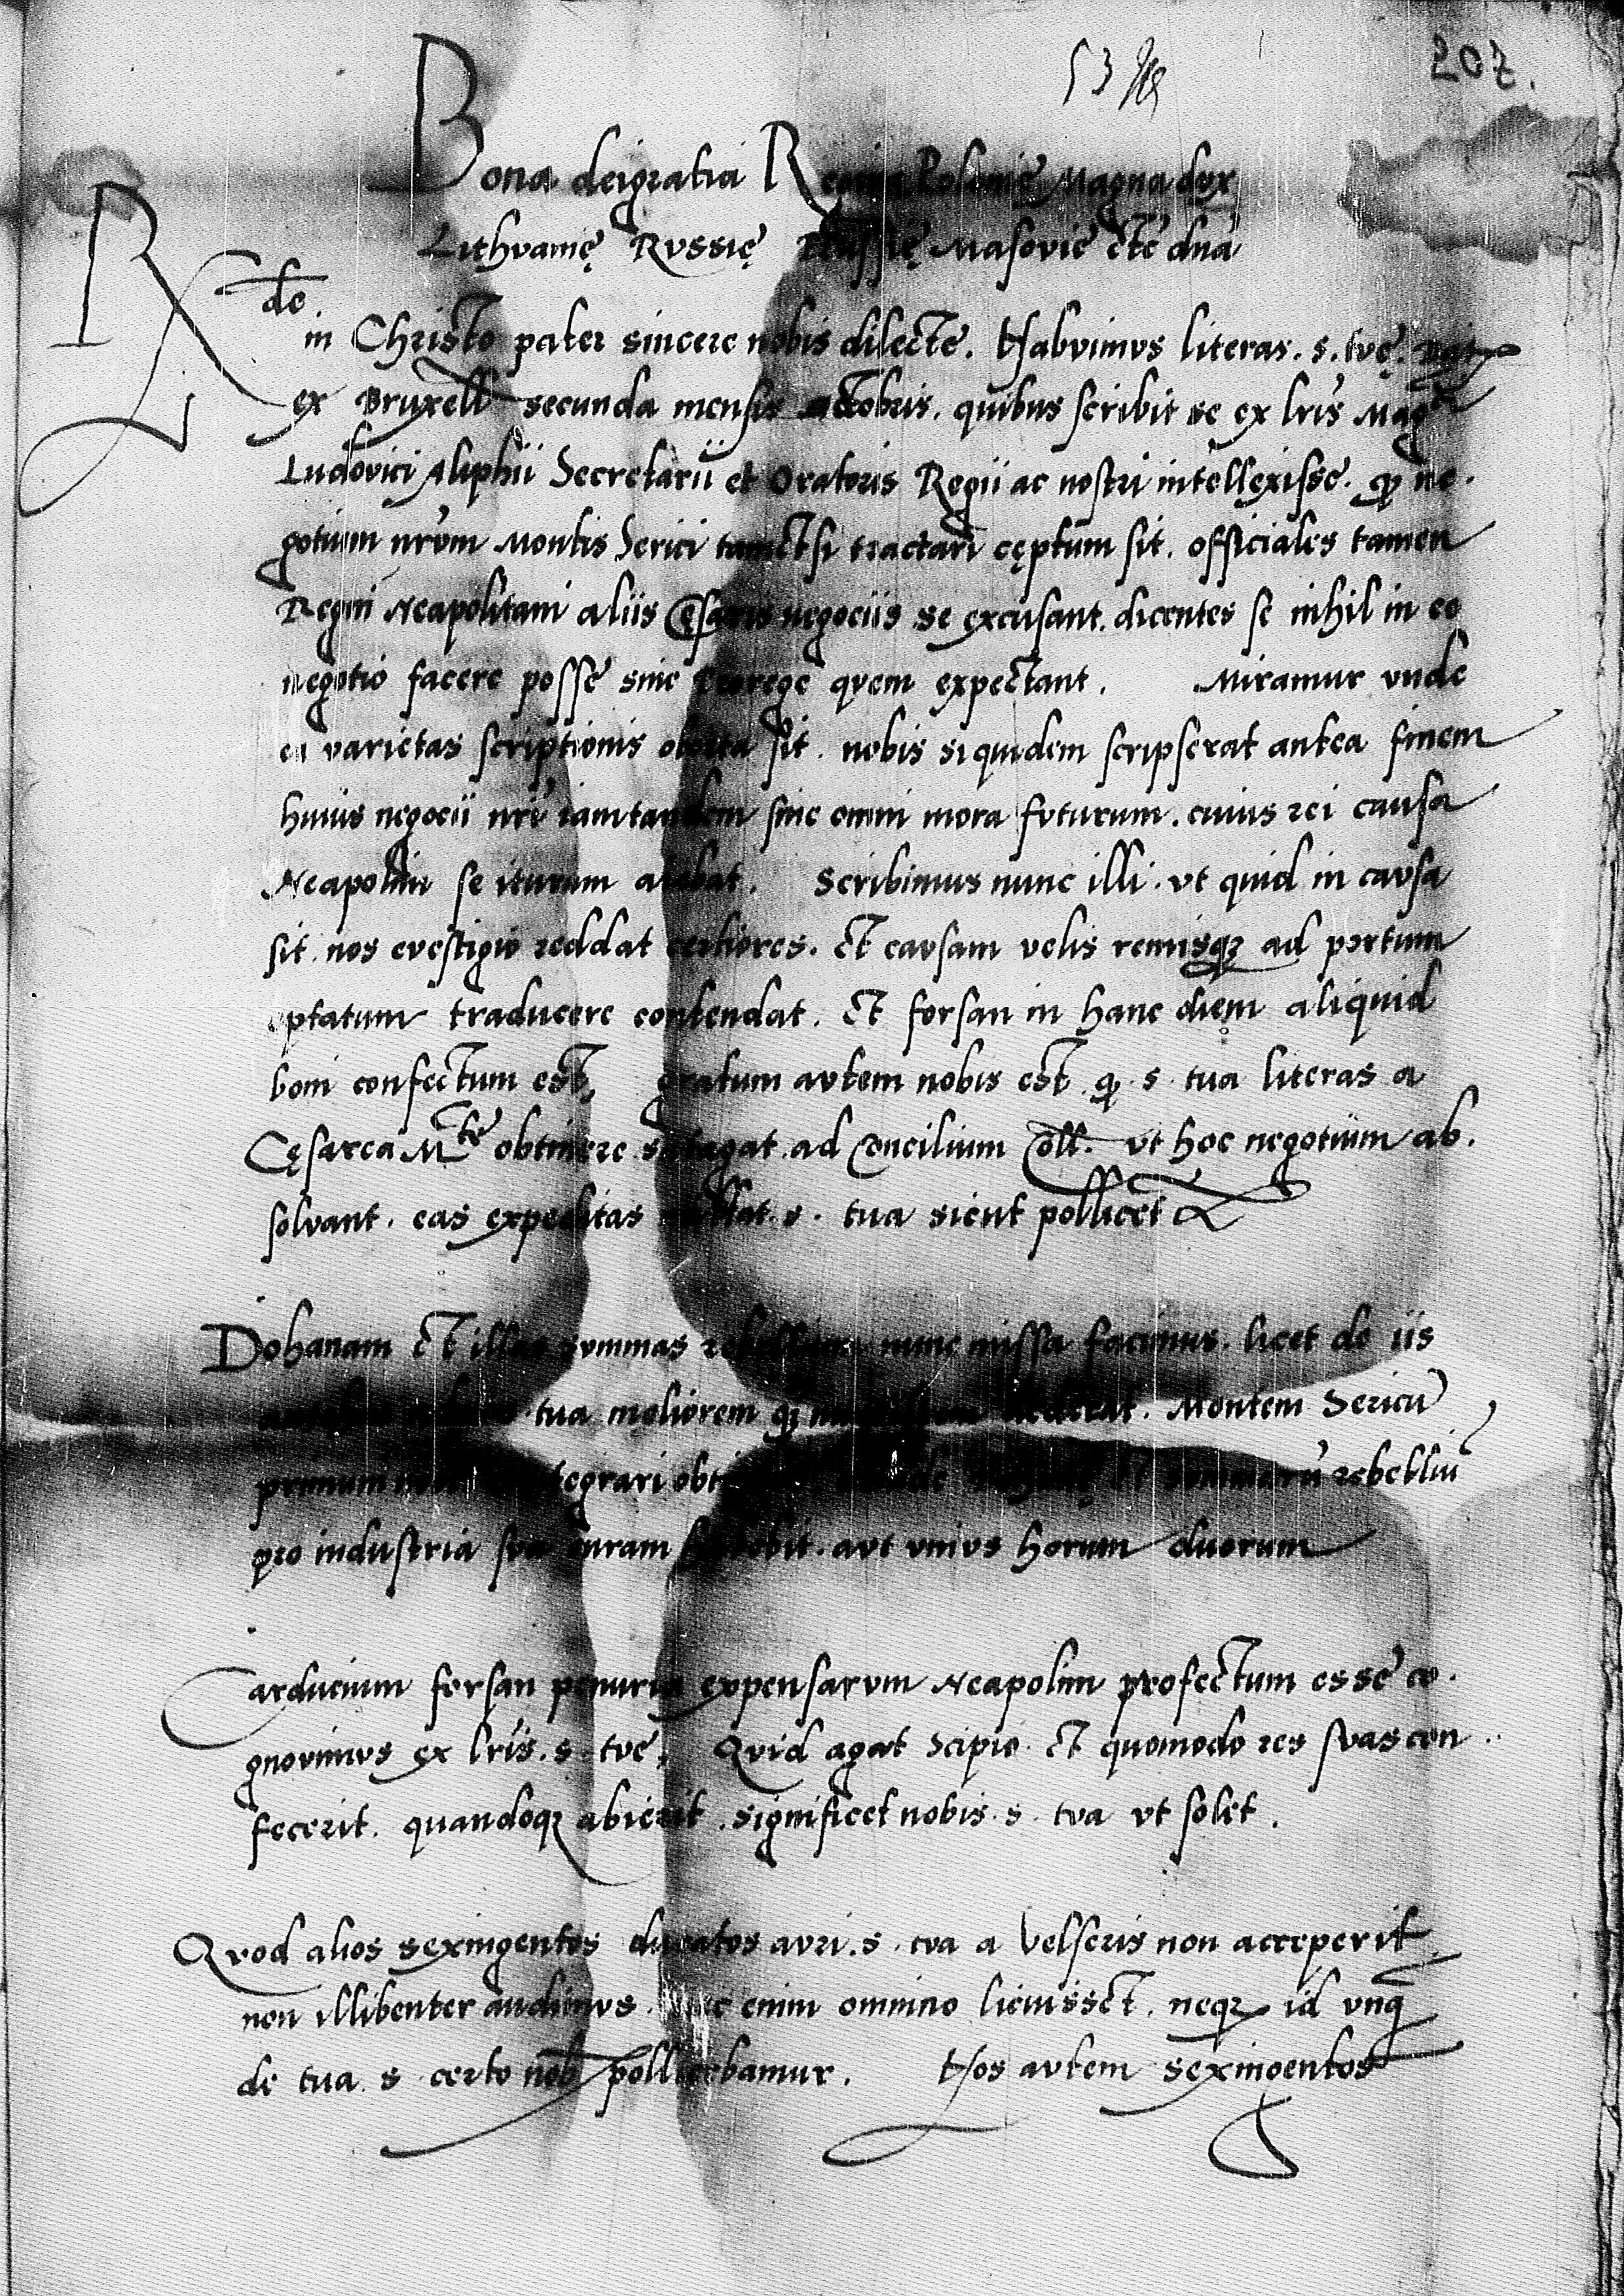 53
207.
Bona dei gratia Regina Polonię Magna dux
Lithvanię Rvssię Prussię Masovię etc̄ dn̄a
Rde
in Christo pater sincere nobis dilecte. Habvimvs literas. s. tvę. Dat
ex Bruxell secunda mensis octobris. quibus scribit se ex lr̄is Mag
Ludovici Aliphii Secretarii et Oratoris Regii ac nostri intellexisse. ꝙ ne.
gotium nr̄vm Montis Serici tametsi tractari cęptum sit. officiales tamen
Regni Neapolitani aliis Cęsaris negociis se excusant. dicentes se nihil in eo
negotio facere posse sine Prorege qvem expectant. Miramur vnde
ea varietas scriptionis oborta sit. nobis siquidem scripserat antea finem
huius negocii nr̄i iamtandem sine omni mora fvturum. cuius rei causa
Neapolim se iturum aiebat. Scribimus nunc illi. vt quid in cavsa
sit. nos evestigio reddat certiores. Et cavsam velis remisqꝫ ad portum
optatum traducere contendat. Et forsan in hanc diem aliquid
boni confectum est, gratum avtem nobis est ꝙ. s. tua literas a
Cęsarea M.te obtinere satagat. ad Concilium Coll. vt hoc negotium ab.
solvant. eas expeditas mittat. s. tua sicut pollicet
Dohanam Et illas svmmas rebellium nunc missa facimus. licet de iis
tua meliorem qꝫ. Montem Sericū
primum obti et summarū rebelliū
pro industria sva curam habebit. avt vnivs horum duorum
Carducium forsan penuria expensarvm Neapolim profectum esse co.
gnovimvs ex lr̄is. s. tvę, Qvid agat Scipio Et quomodo res svas con..
fecerit. quandoqꝫ abierit. significet nobis. s. tva vt solet.
Qvod alios sexingentos ducatos avri. s. tva a Velseris non acceperit
non illibenter audimvs. enim omnino licuisset. neqꝫ id vnq̄
de tua. s. certo nob pollicebamur. Hos avtem sexingentos